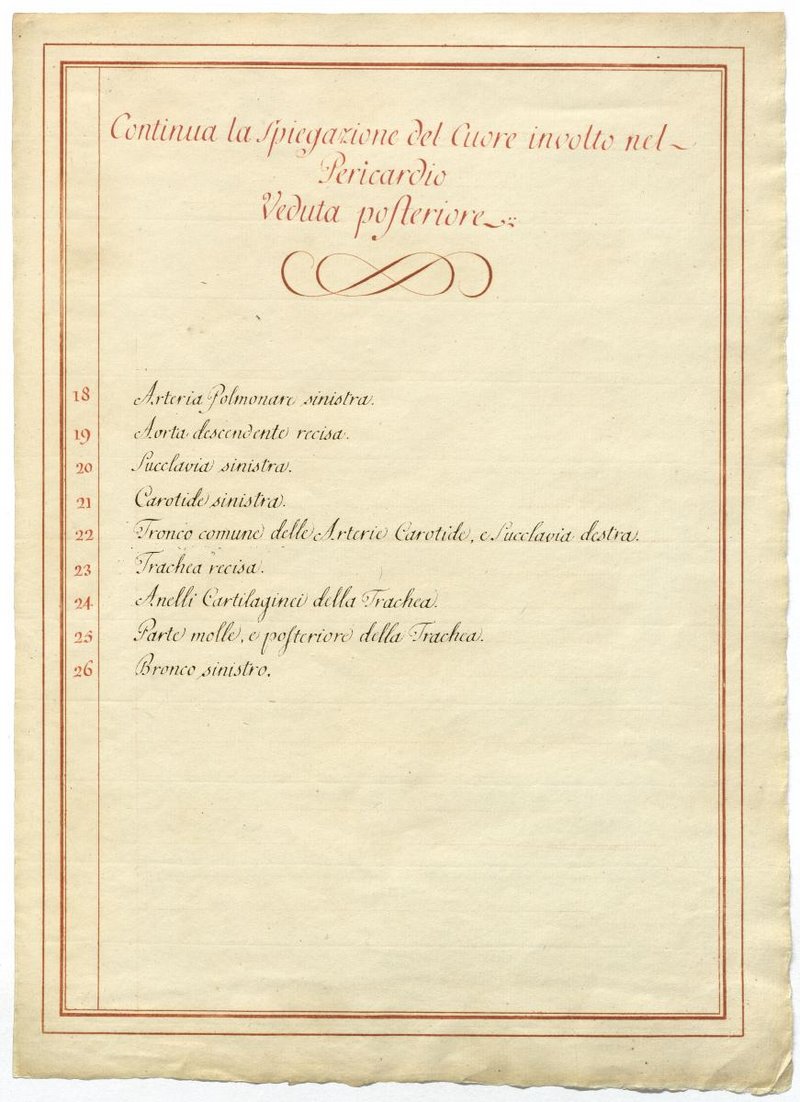 Continua la Spiegazione del Cuore involto nel
Pericardio
Veduta posteriore
18 Arteria Polmonare sinistra.
19 Aorta descendente recisa.
20 Succlavia sinistra.
21 Carotide sinistra.
22 Tronco comune delle Arterie Carotide, e Succlavia destra.
23 Trachea recisa.
24 Anelli Cartilaginei della Trachea.
25 Parte molle, e posteriore della Trachea.
26 Bronco sinistro.